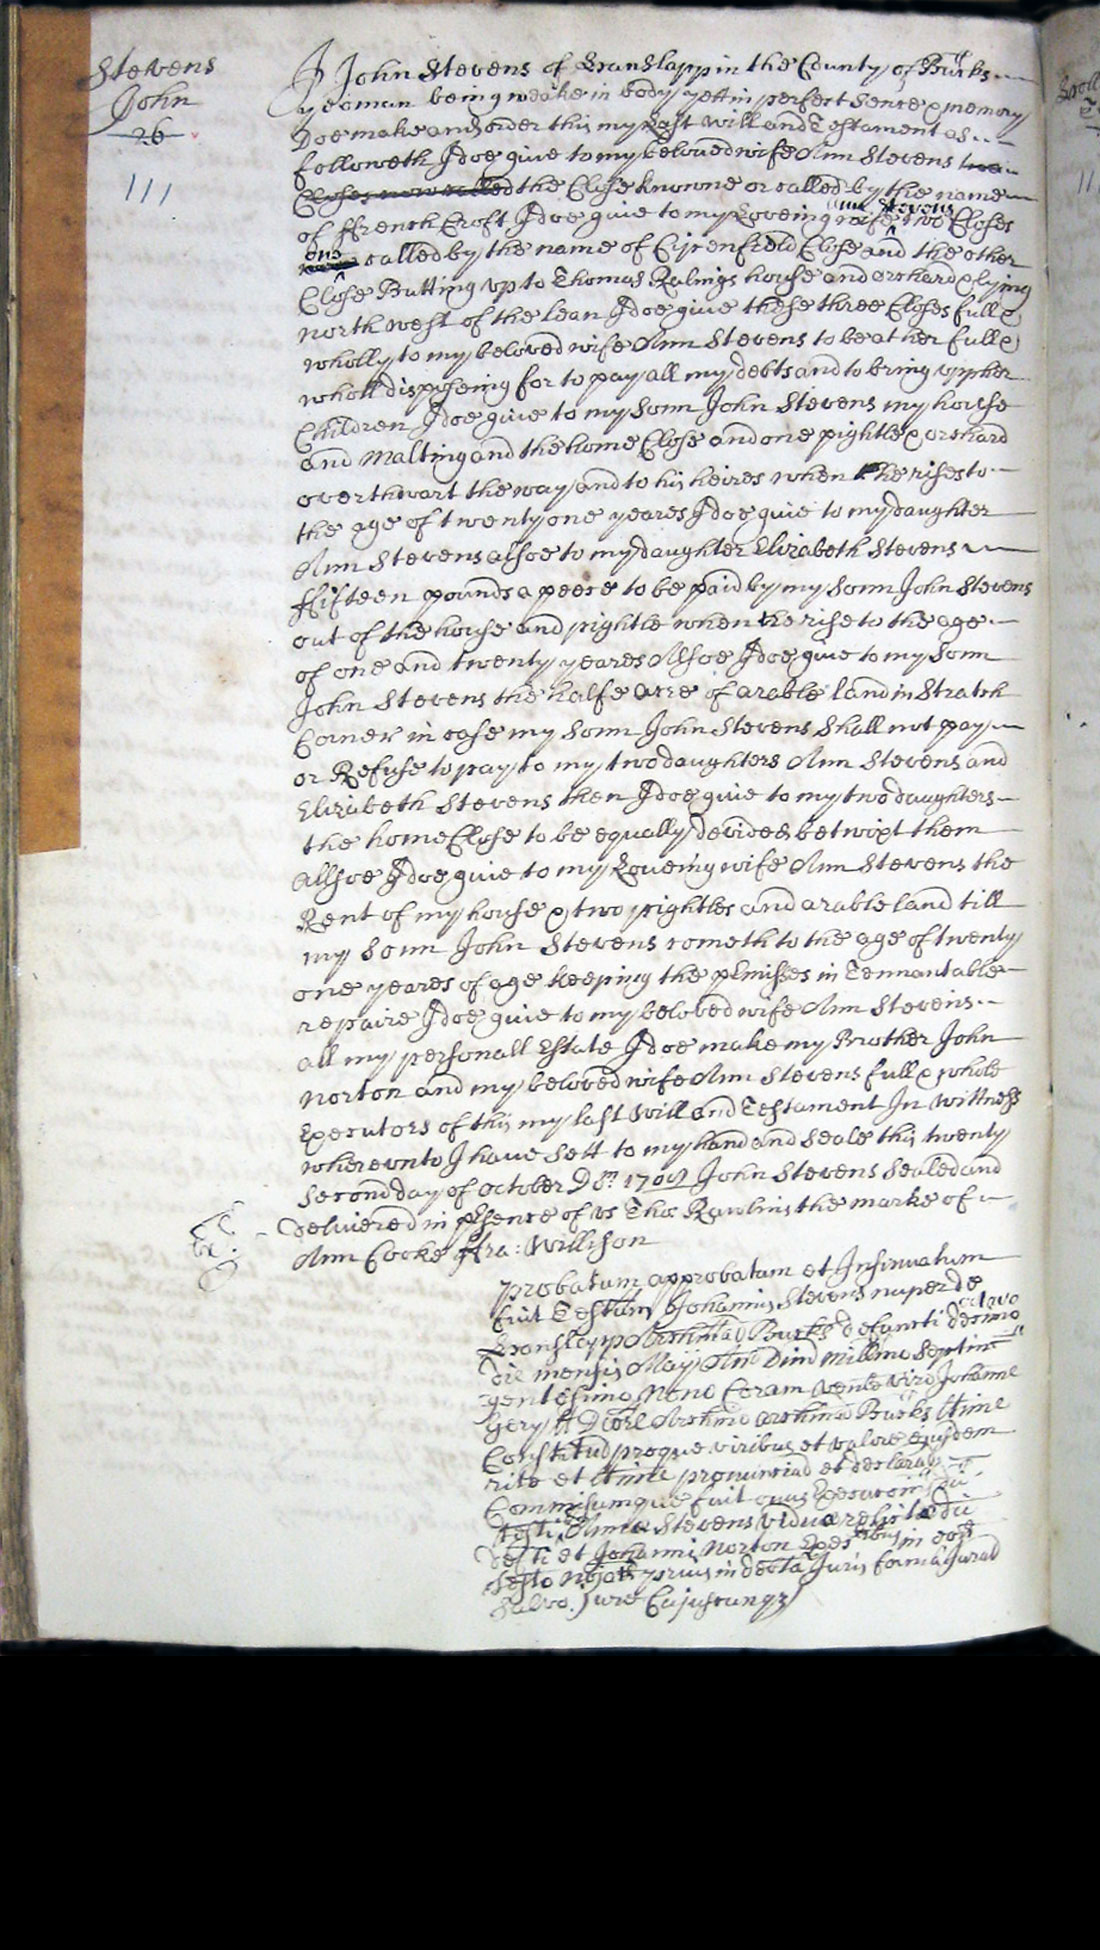 Stevens
John
26
111
I John Stevens of Hanslapp in the County of Bucks
yeoman being weake in body yett in perfect sence & memory
Doe make and order this my Last Will and Testament as
followeth I doe give to my beloved wife Ann Stevens two
Closes now called the Close knowne or called by the name
of ffrench Croft I doe give to my Loveing wife Ann Stevens two Closes
one called by the name of Close and the other
Close Butting up to Thomas Ralings house and orchard & lying
north west of the lean I doe give these three Closes full &
wholly to my beloved wife Ann Stevens to be at her full &
whole disposeing for to pay all my debts and to bring up her
Children I doe give to my Sonn John Stevens my house
and Malting and the home Close and one pightle & orchard
overthwart the way and to his heires when he rises to
the age of twenty one yeares I doe give to my daughter
Ann Stevens alsoe to my daughter Elizabeth Stevens
ffifteen pounds a peece to be paid by my Sonn John Stevens
out of the house and pightle when he rise to the age
of one and twenty yeares Alsoe I doe give to my Sonn
John Stevens the halfe acre of arable land in Stratch
Corner in case my Sonn John Stevens Shall not pay
or Refuse to pay to my two daughters Ann Stevens and
Elizabeth Stevens then I doe give to my two daughters
the home Close to be equally devided betwixt them
Allsoe I doe give to my Loveing wife Ann Stevens the
Rent of my house & two pightles and arable land till
my Sonn John Stevens cometh to the age of twenty
one yeares of age keeping the pEmisses in Tennantable
repaire I doe give to my beloved wife Ann Stevens
all my personall Estate I doe make my Brother John
Norton and my beloved wife Ann Stevens full & whole
Executors of this my last Will and Testament In Wittness
whereunto I have sett to my hand and Seale this twenty
Second day of October 1708 John Stevens Sealed and
Delivered in pEsence of us Tho: Rawlins the marke of
Ann Cooke ffra: Willison
Probatum approbatum et Insinuatum
fuit Testum Johannis Stevens nuper de
Hanslapp Bucks defuncti octavo
die mensis Maij Ano Dmi millimo Septin
gentesimo Nono Coram venle viro Johanne
Gery Bucks ltime
Constitut proque viribus et valore ejusdem
rite et ltime pronunciat et declarat
Commissumque fuit onus
Annae Stevens viduae relictae
et Johanni Norton in eod
prius in debita Juris forma Jurat
Salvo Jure Cujuscunq